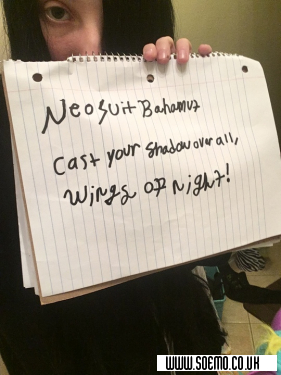 Neo Suit Bahamut
Cast your shadow over all,
Wings of Night!
WWW.SOEMO.CO.UK